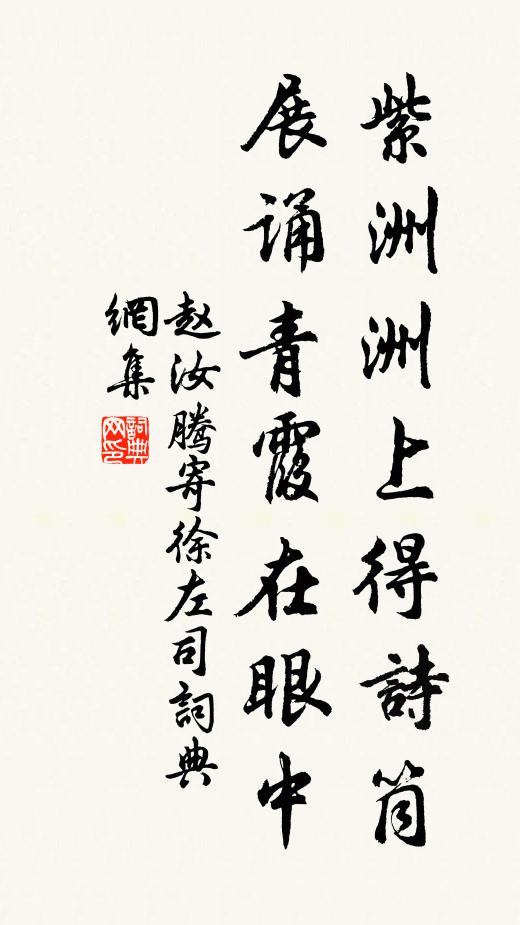 紫洲洲上得詩筒
展诵青霞在眼中
赵汝騰寄徐左司詞典
網集
詞典網印